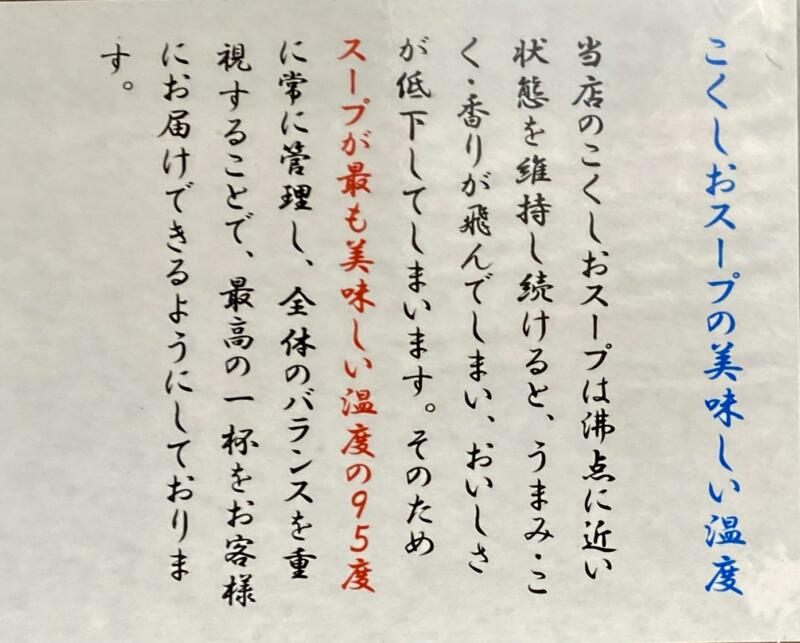 こくしおスープの美味しい温度
当店のこくしおスープは沸点に近い
状態を維持し続けると、うまみ・こ
く・香りが飛んでしまい、おいしさ
が低下してしまいます。そのため
スープが最も美味しい温度の95度
に常に管理し、全体のバランスを重
視することで、最高の一杯をお客様
にお届けできるようにしておりま
す。